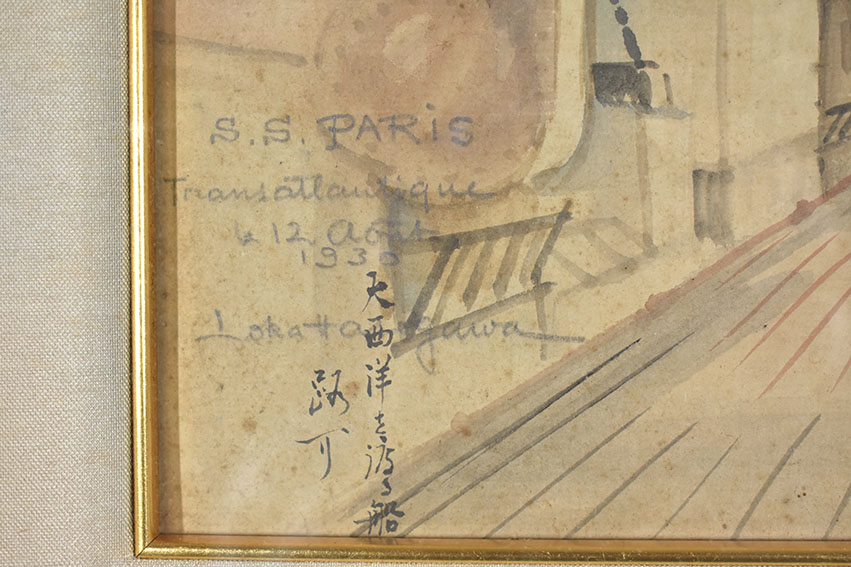 S.S. PARIS
Transatlantique
le 12 Août
1930
Luka Hasegawa
大西洋を渡る船
路可